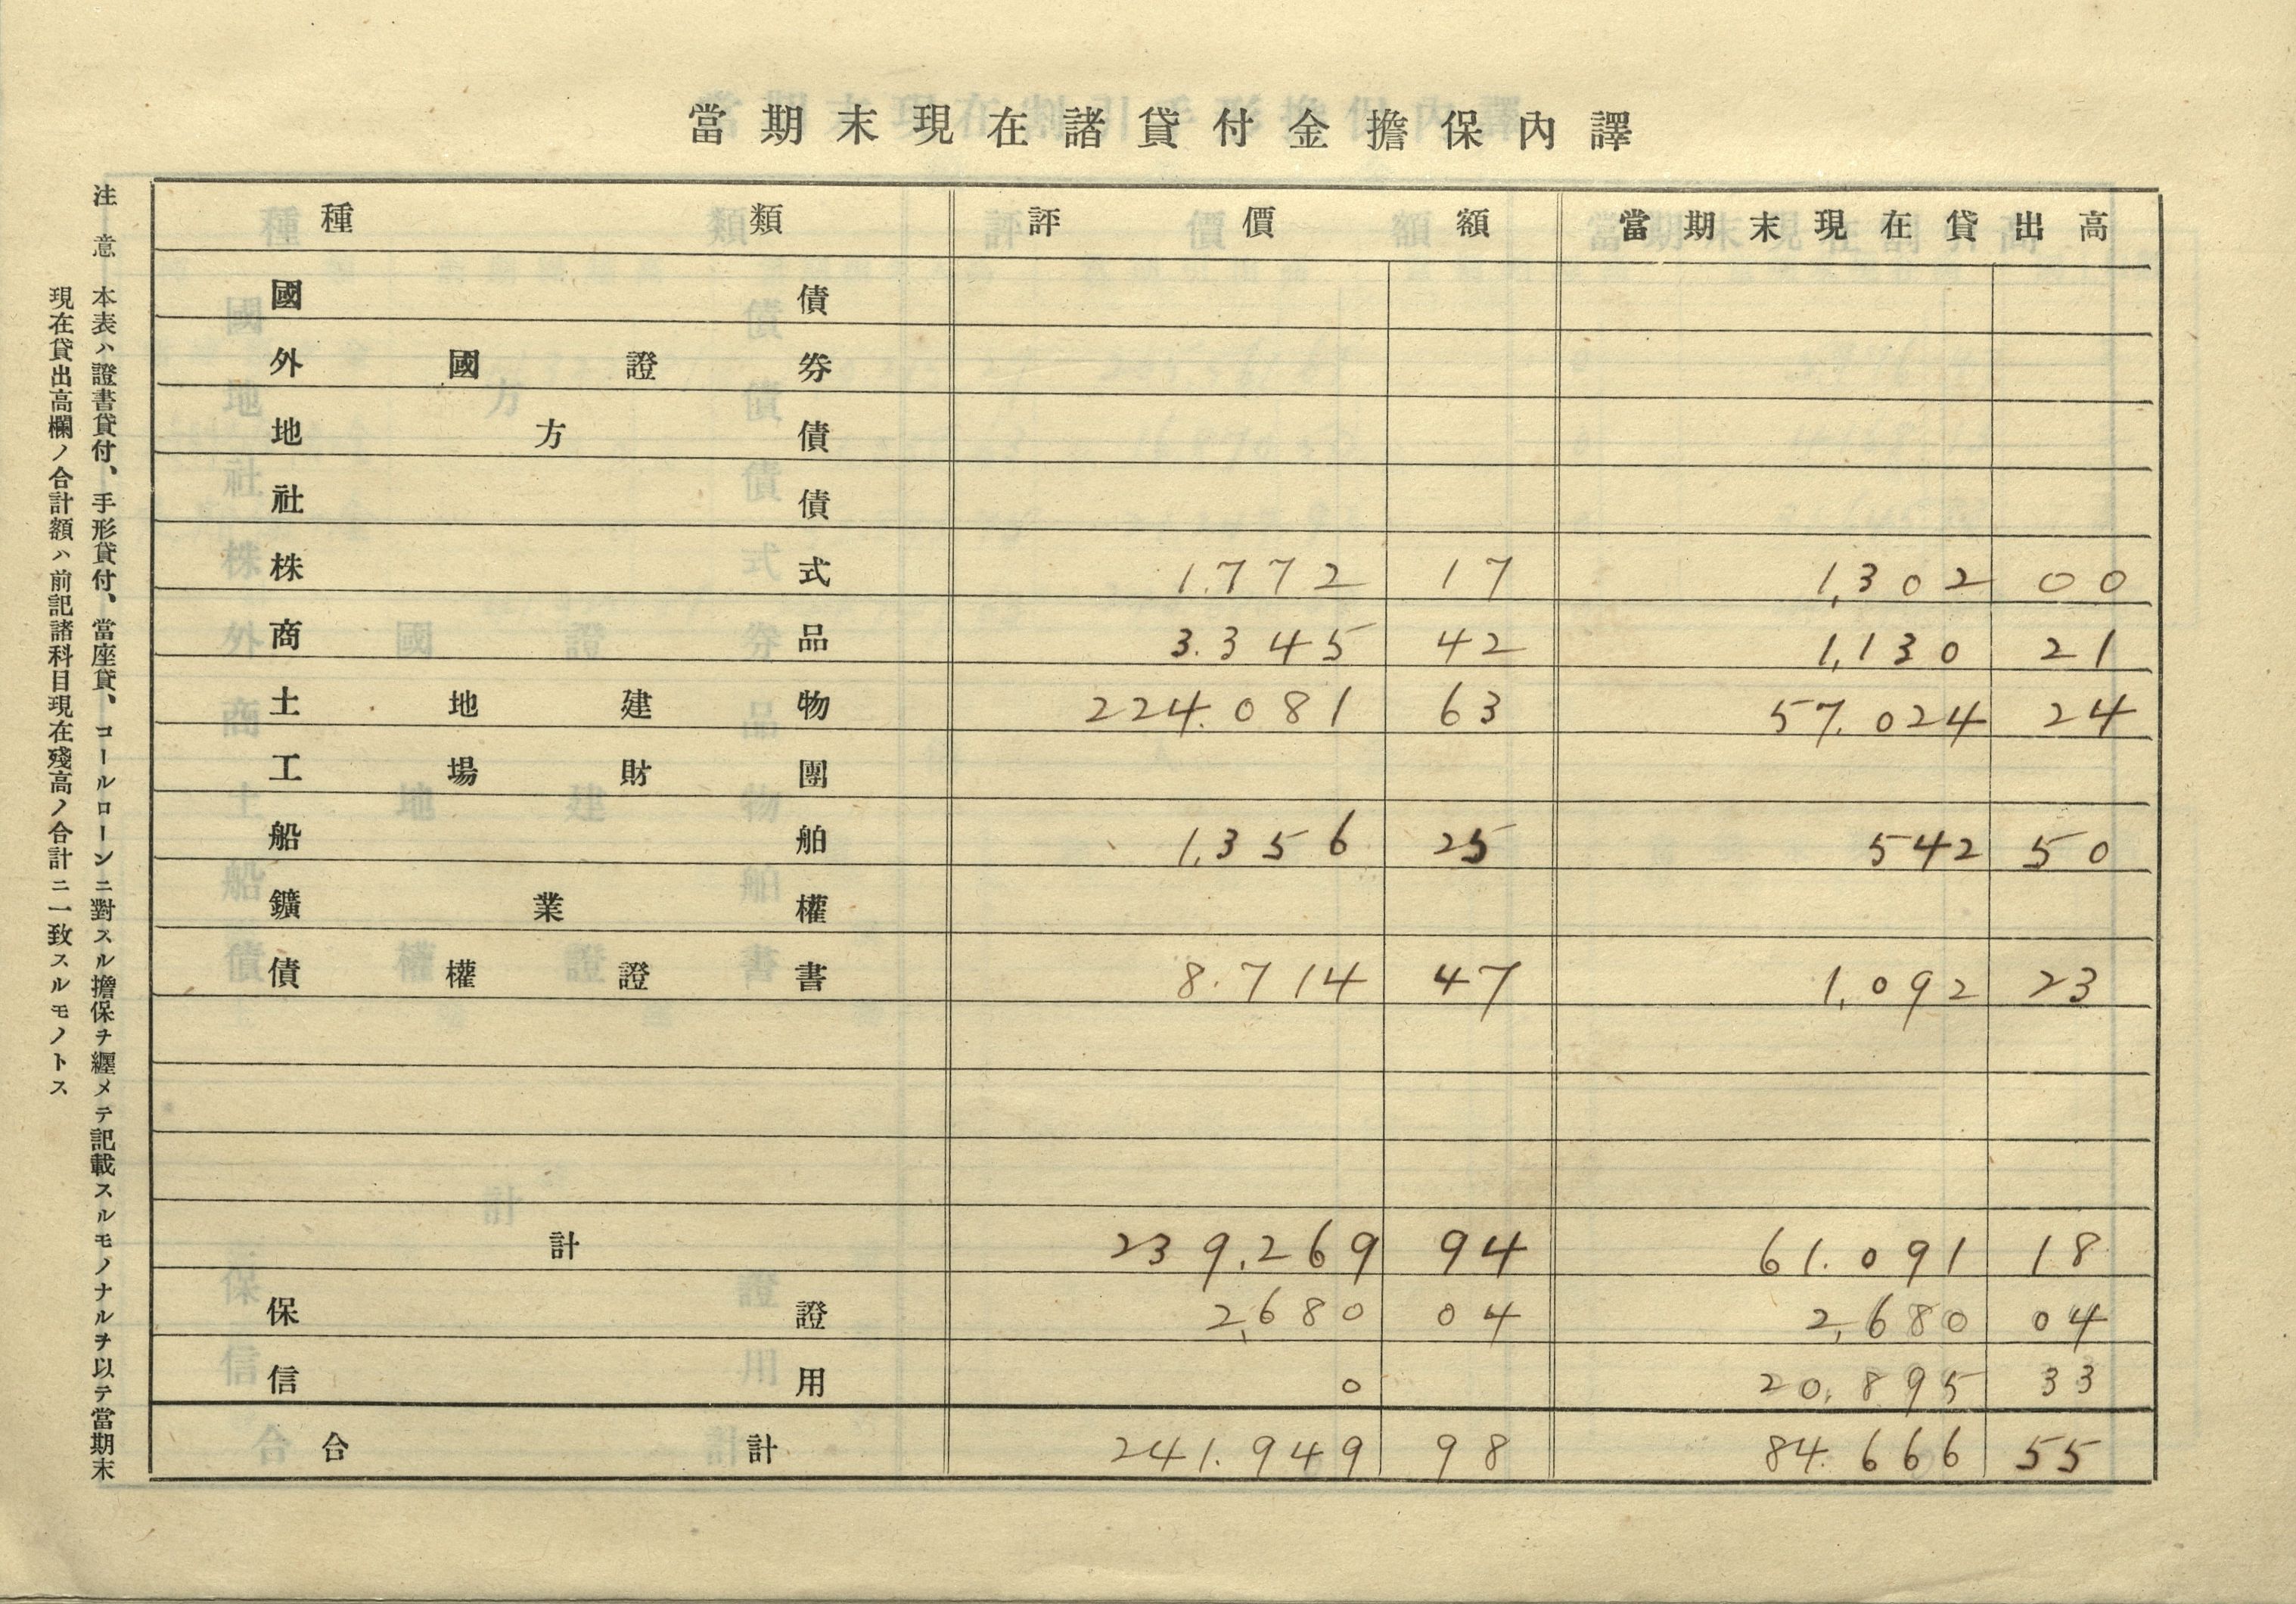 當期末現在諸貸付金擔保內譯
種類 評價額 當期末現在貸出高
國債
外國證券
地方債
社債
株式 1.772 17 1,302 00
商品 3.345 42 1,130 21
土地建物 224.081 63 57.024 24
工場財團
船舶 1,356 25 542 50
鑛業權
債權證書 8.714 47 1,092 23
計 239,269 94 61.091 18
保證 2,680 04 2,680 04
信用 0 20,895 33
合計 241.949 98 84.666 55
注意 本表ハ證書貸付、手形貸付、當座貸、コールローンニ對スル擔保ヲ纒メテ記載スルモノナルヲ以テ當期末
現在貸出高欄ノ合計額ハ前記諸科目現在殘高ノ合計ニ一致スルモノトス